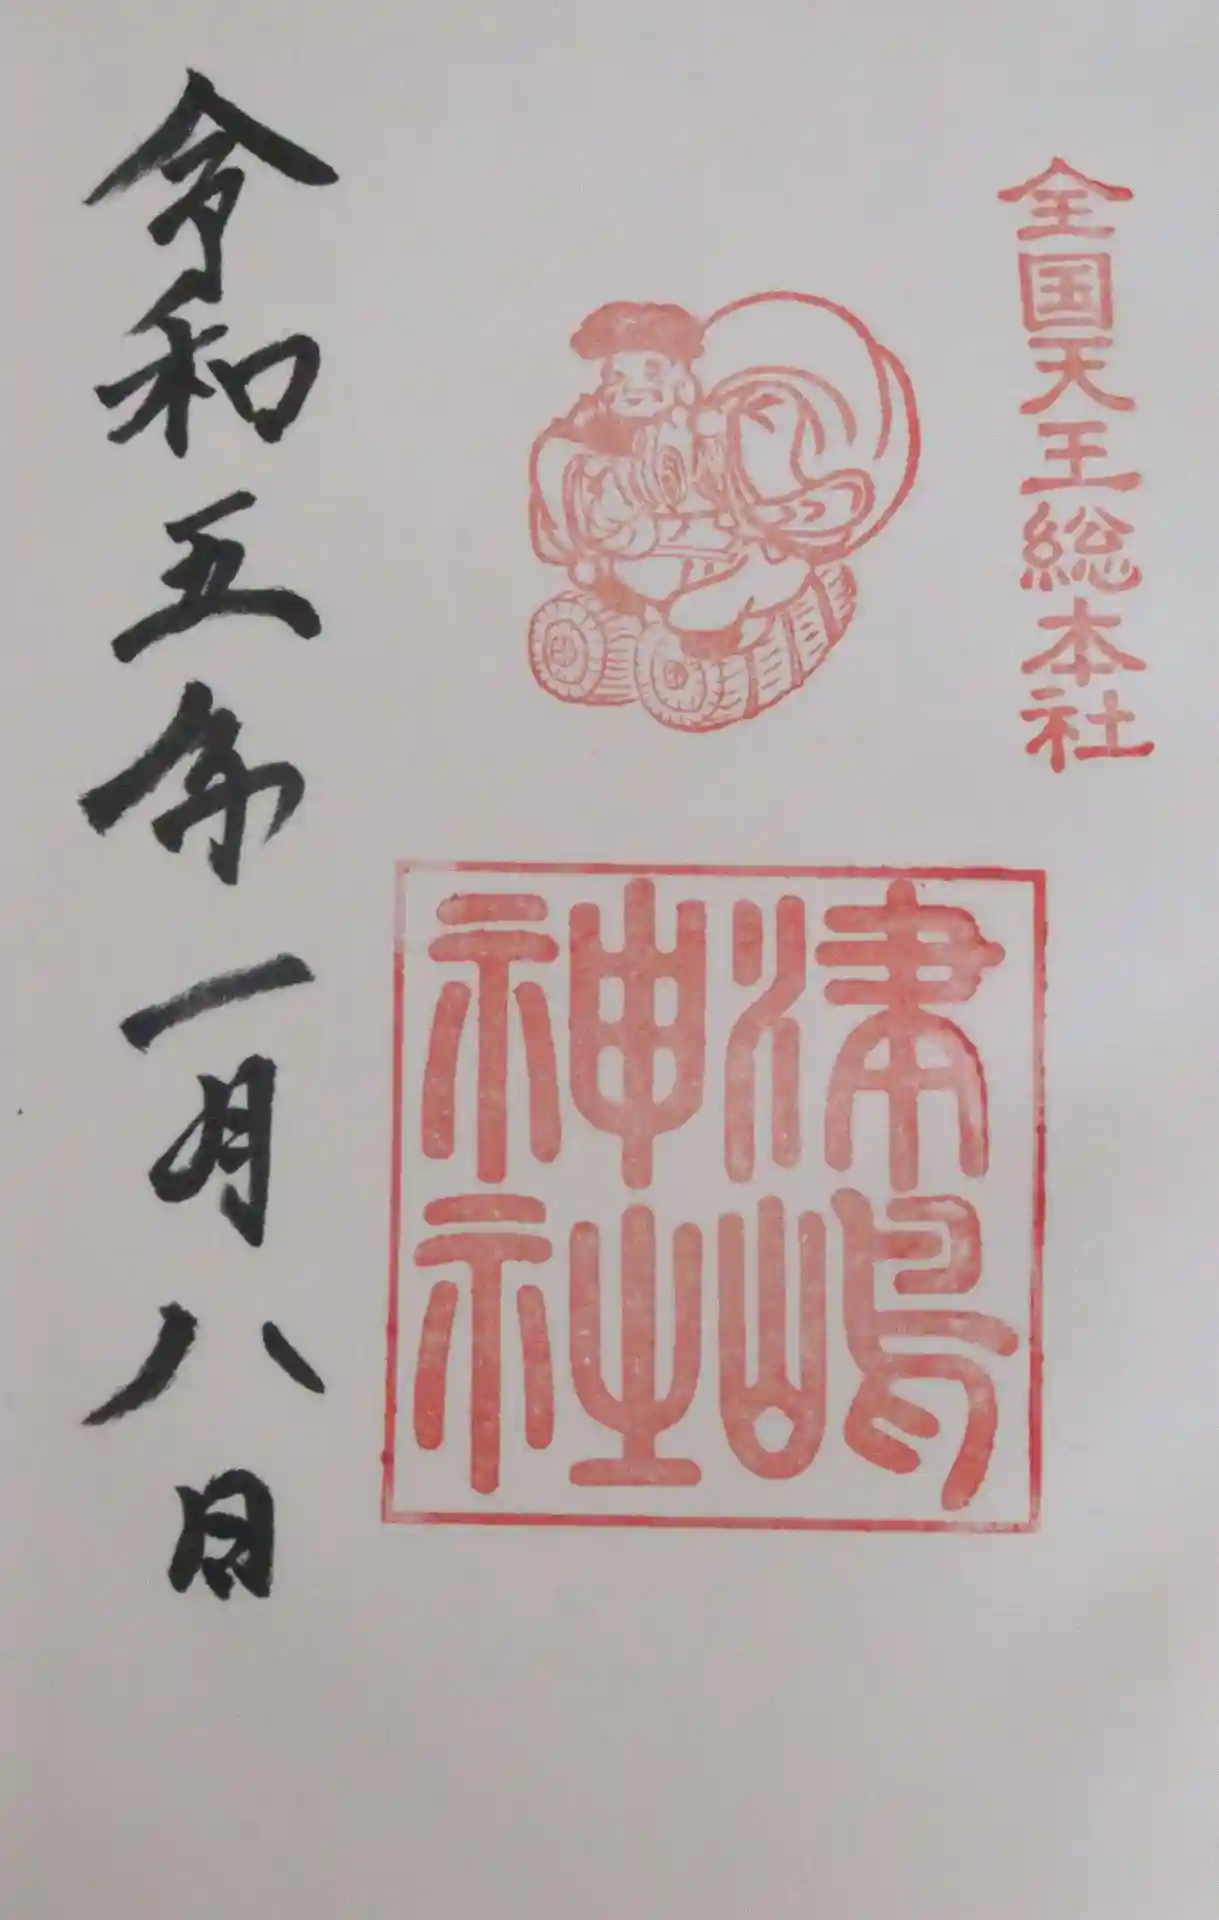 全国天王総本社
津嶋神社
令和五年一月八日